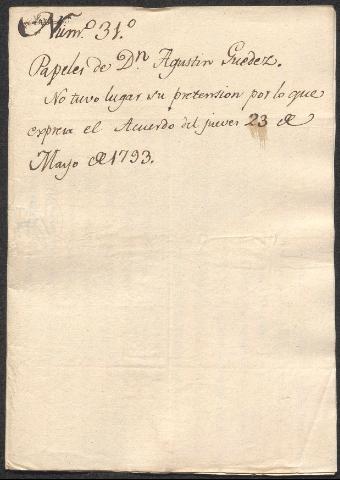 Núm.º 31.º
Papeles de Dⁿ Agustin Guedez.
No tuvo lugar su pretension por lo que
expresa el Acuerdo del jueves 23 de
Mayo de 1793.